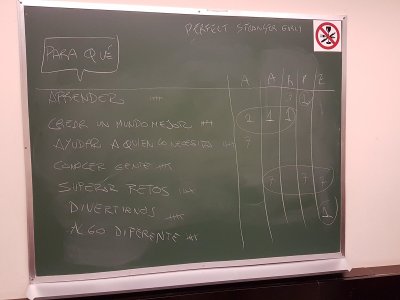 PERFECT STRANGER
PARA QUÉ
A A R P E
APRENDER
CREAR UN MUNDO MEJOR
2 1 1
AYUDAR A QUIEN LO NECESITA 7
CONOCER GENTE
SUPERAR RETOS 7 7 7
DIVERTIRNOS 1
ALGO DIFERENTE